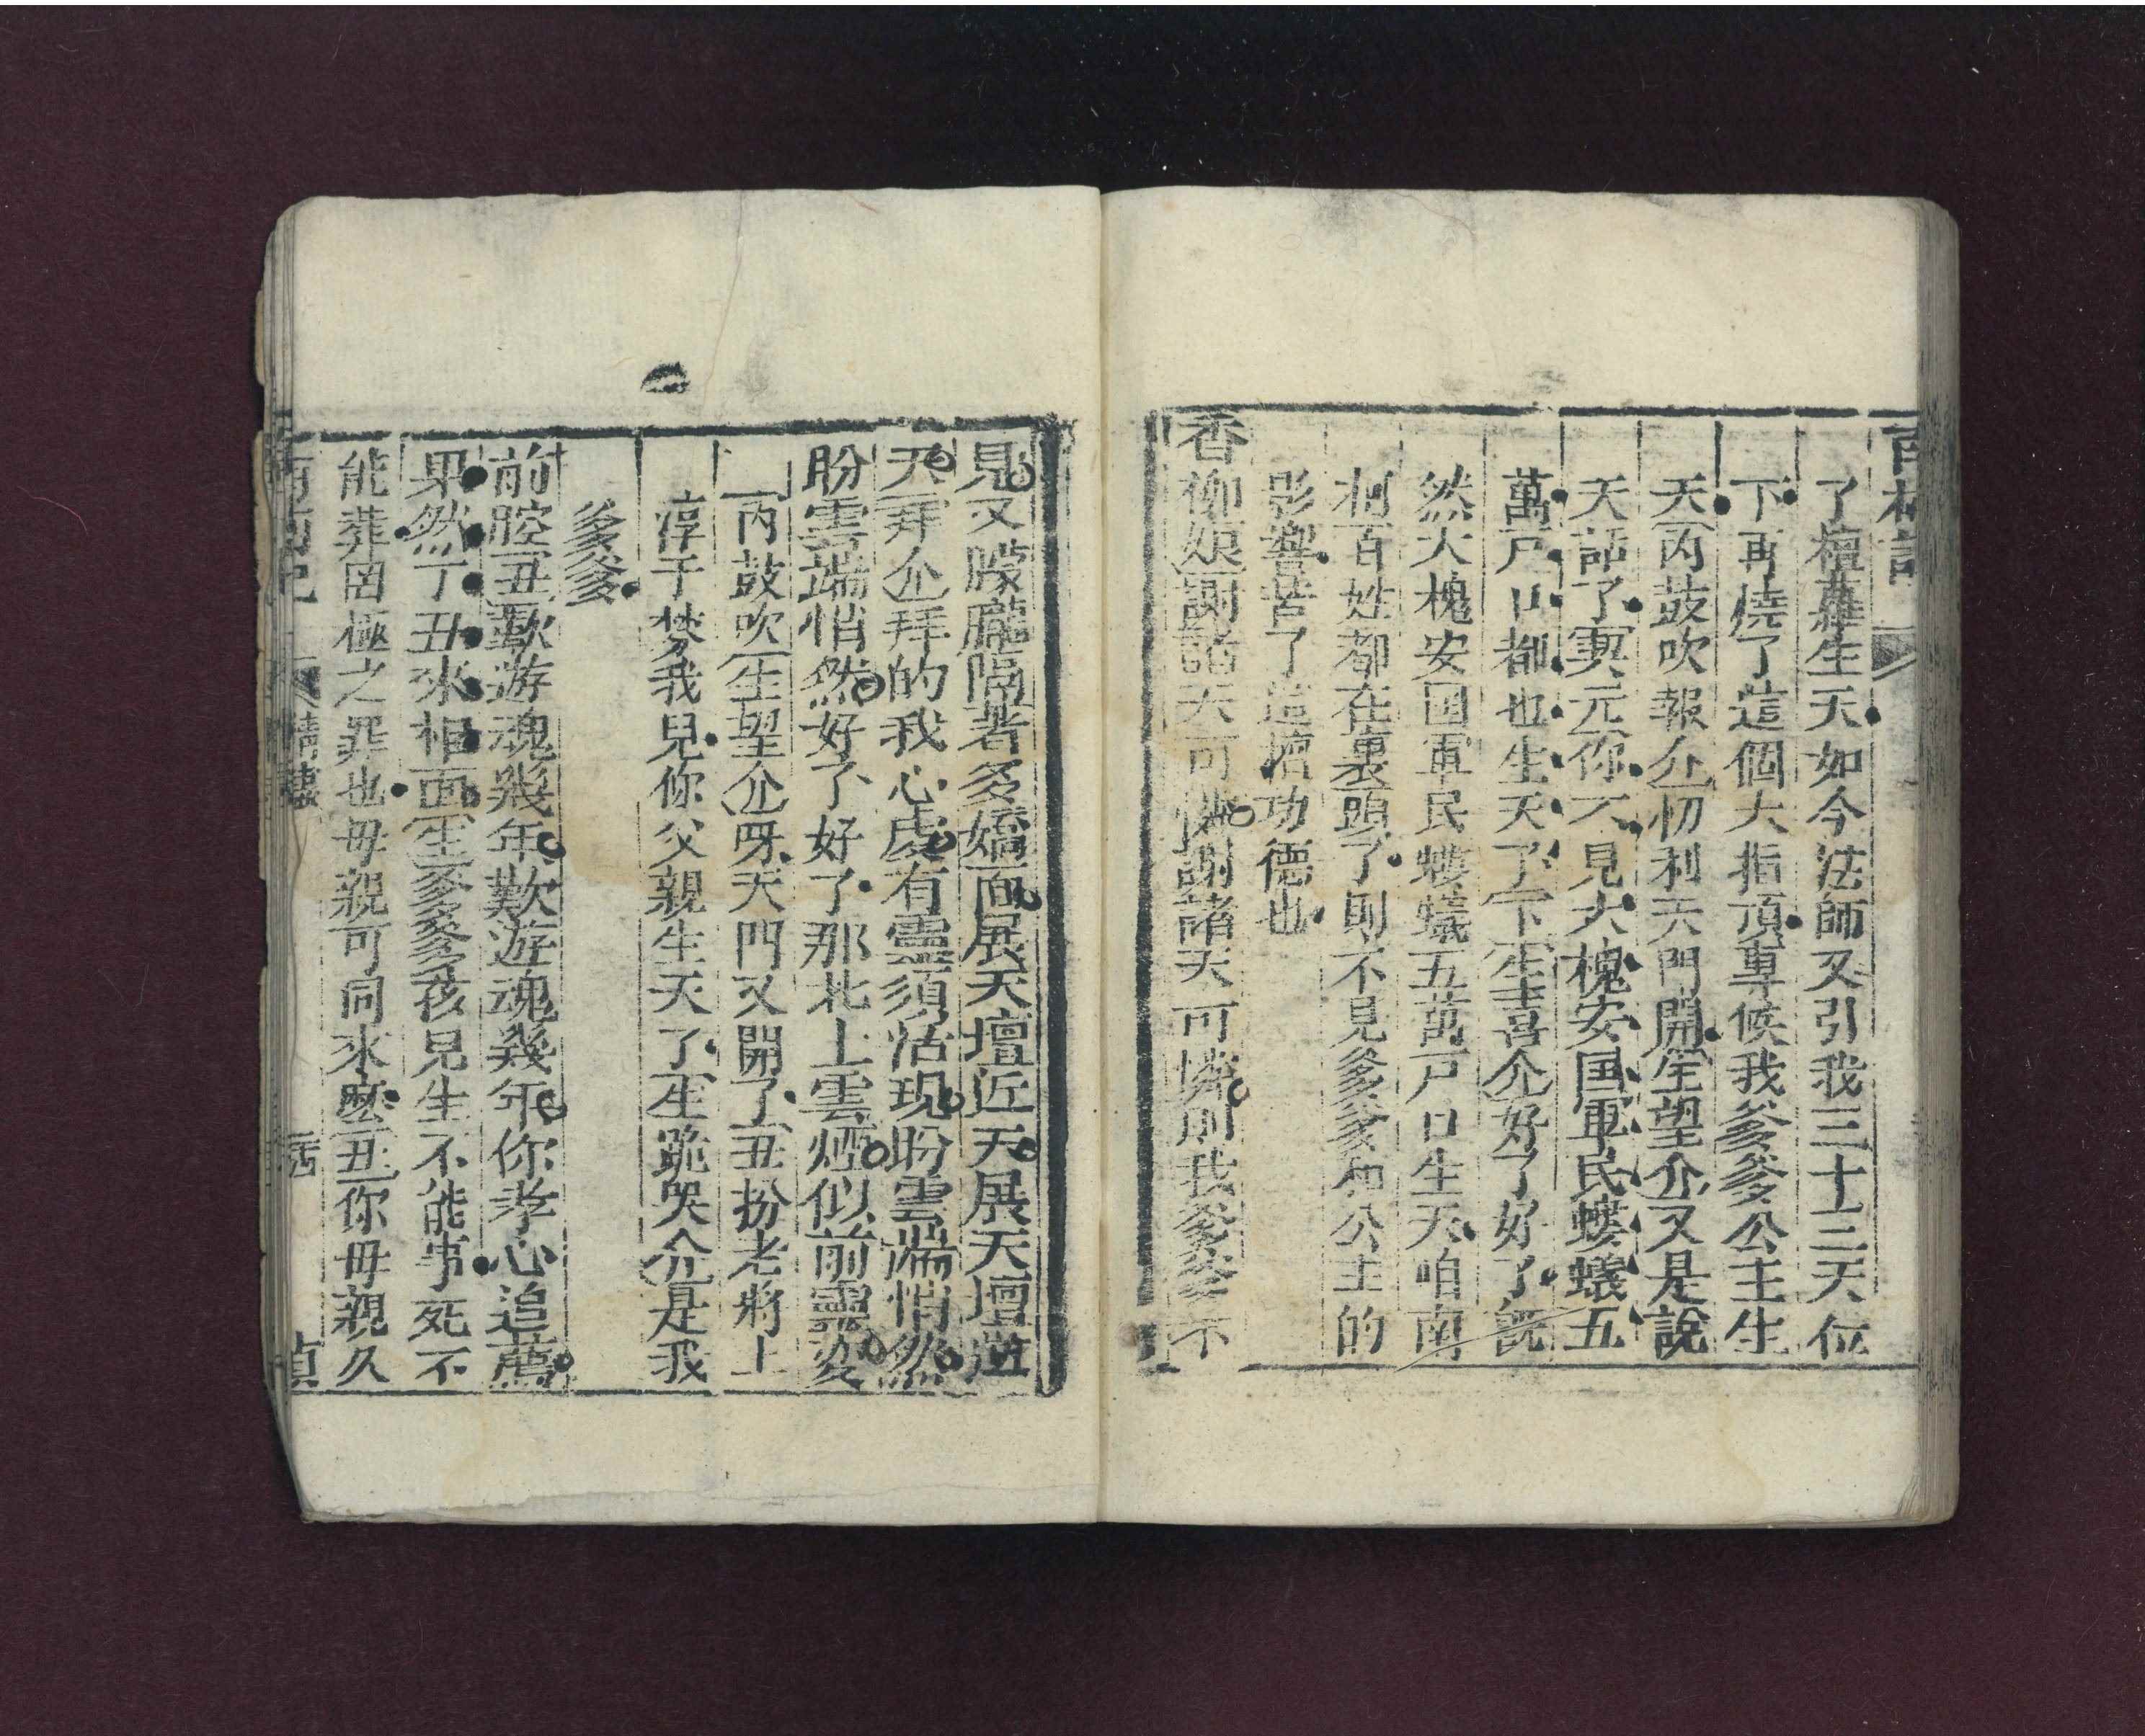 南柯記
了檀蘿生天如今法師又引我三十三天位
下再燒了這個大指頂專候我爹爹公主生
天內鼓吹報介忉利天門開生望介又是說
天話了寞元你不見大槐安国軍民螻蟻五
萬戶口都也生天了下生喜介好了好了既
然大槐安国軍民螻蟻五萬戶口生天咱南
柯百姓都在裏頭了則不見爹爹和公主的
影響苦了這壇功德也
香柳娘謝諸天可憐謝諸天可憐則我爹爹不
見又朦朧隔著多嬌面展天壇近天展天壇近
天拜介拜的我心虔有靈須活現盼雲端悄然
盼雲端悄然好了好了那北上雲煙似前靈変
內鼓吹生望介呀天門又開了丑扮老將上
淳于棼我兒你父親生天了生跪哭介是我
爹爹
前腔丑歎游魂幾年歎遊魂幾年你孝心追薦
果然了丑來相面生爹爹孩兒生不能事死不
能葬罔極之罪也母親可同來麼丑你母親久
南柯記 情盡